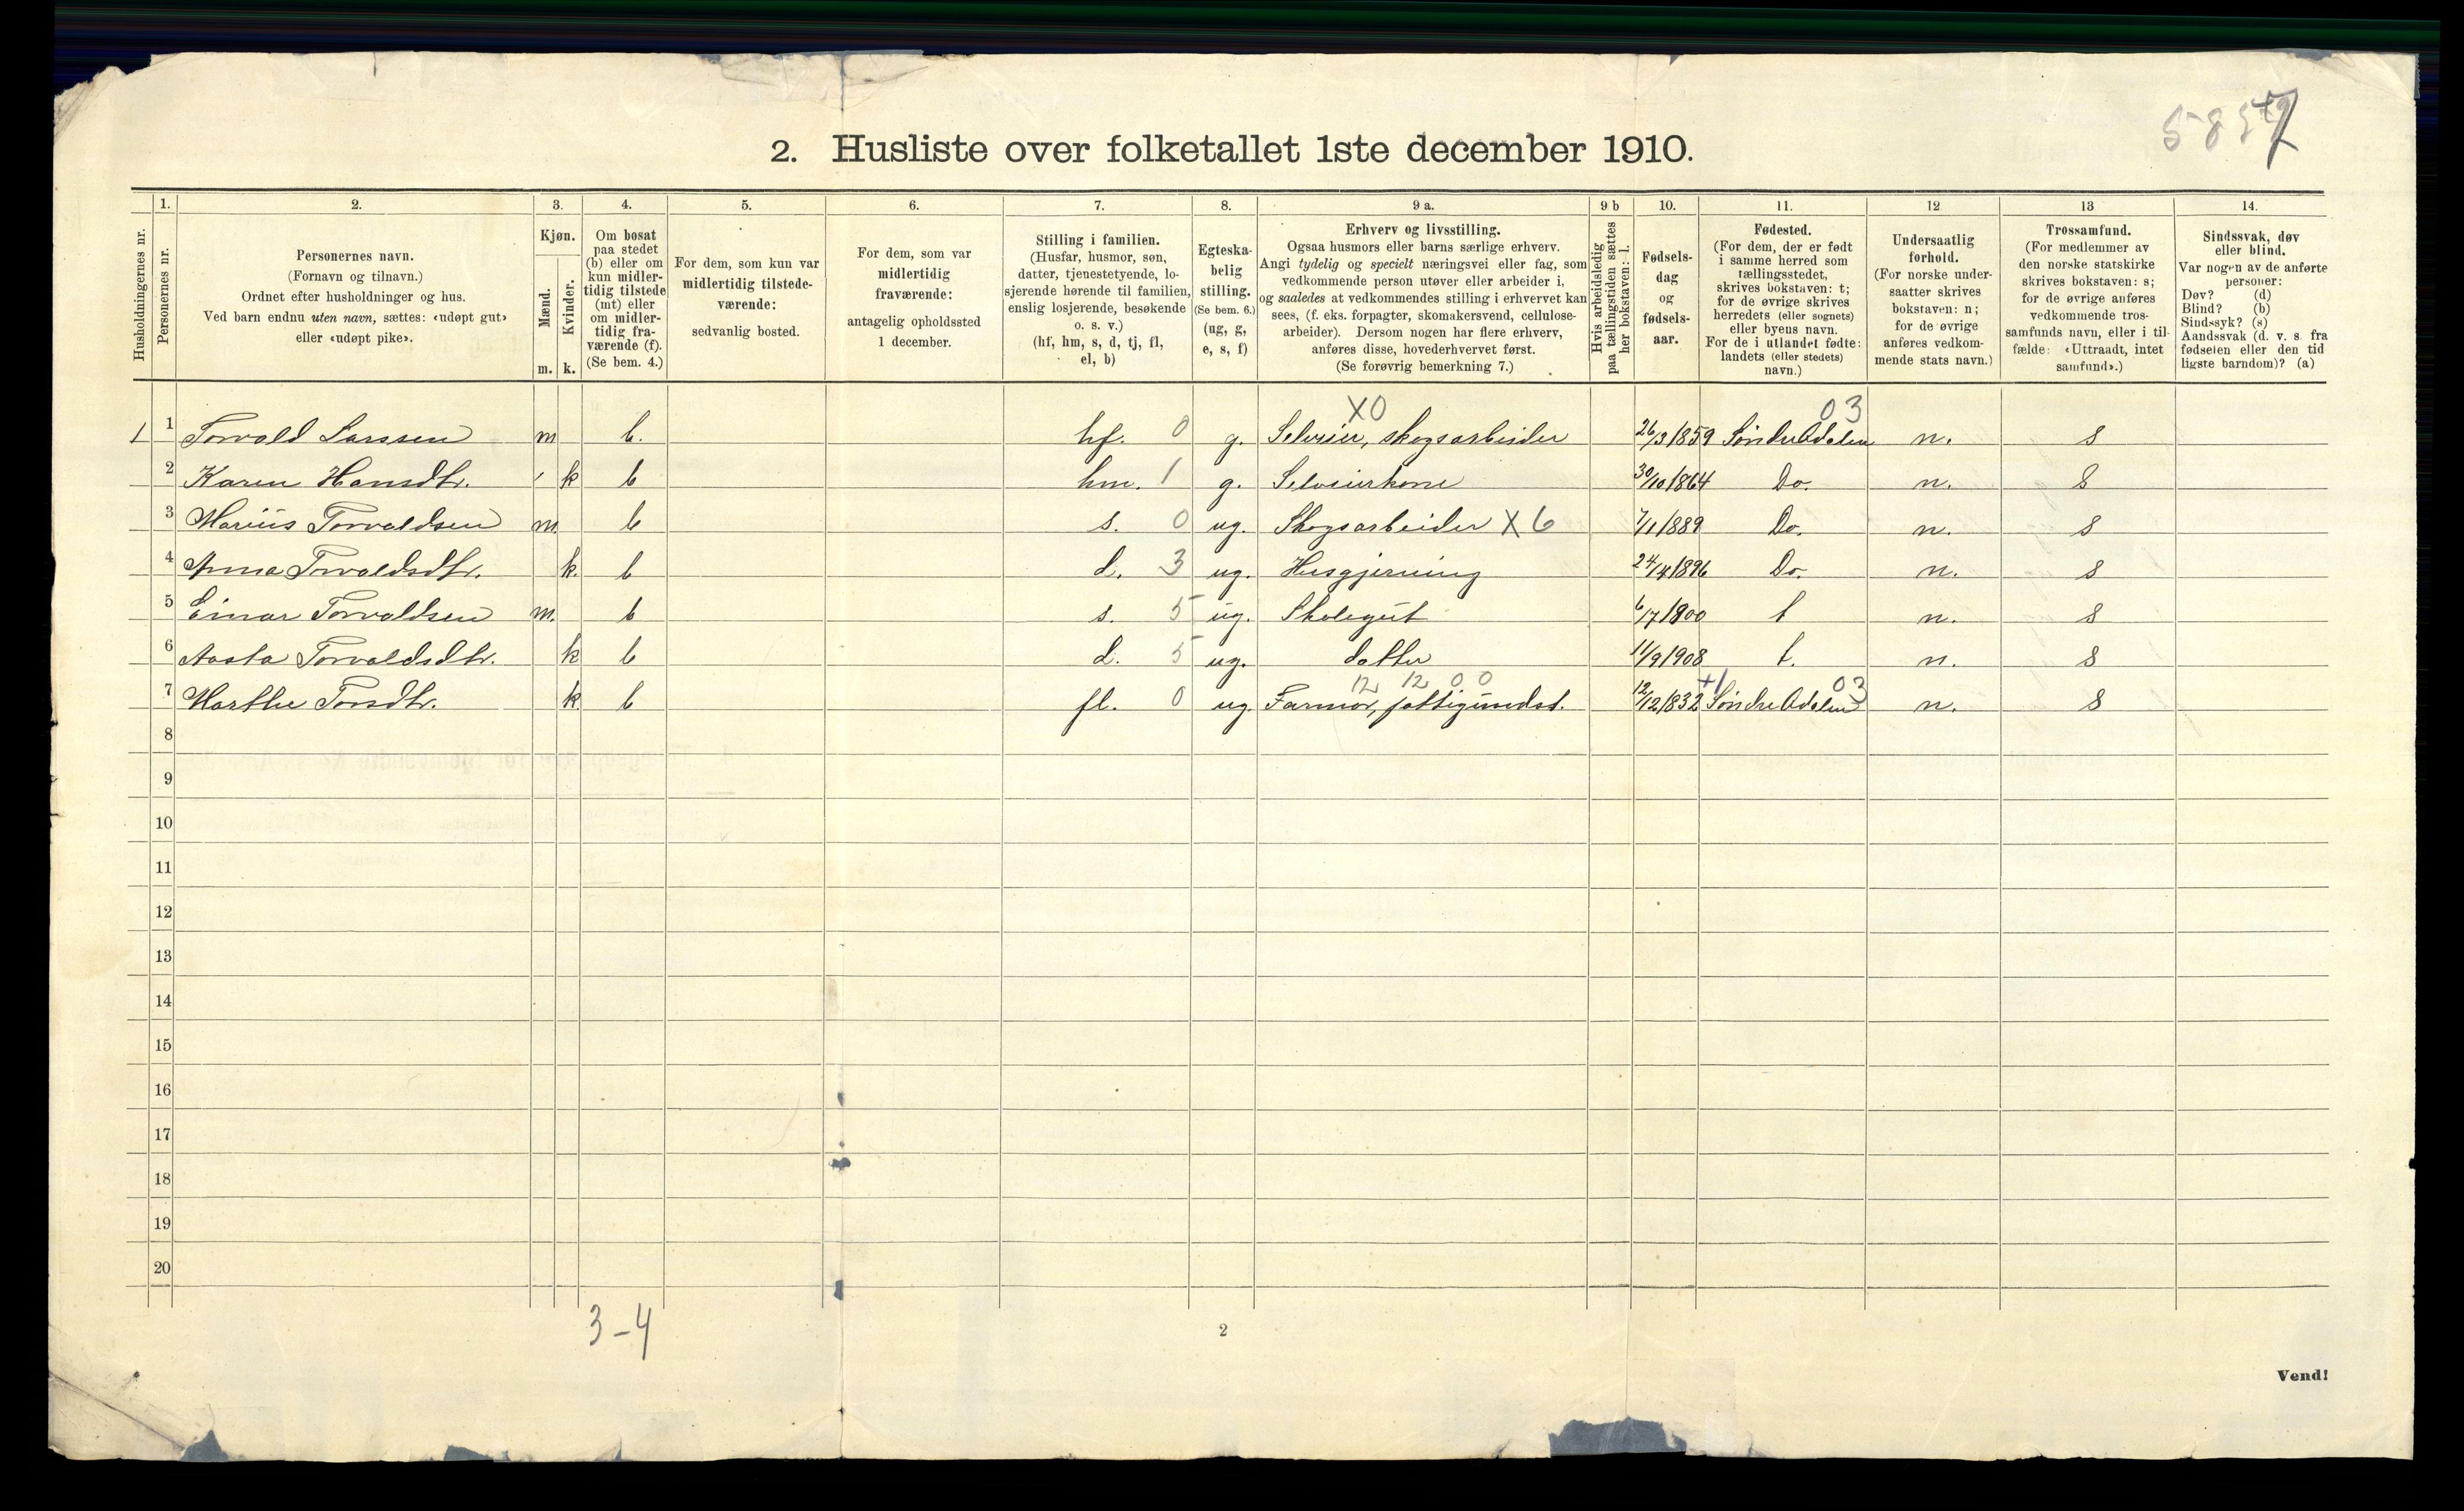 5857
2. Husliste over folketallet 1ste december 1910.
Husholdningernes nr.
1.
Personernes nr.
2.
Personernes navn.
(Fornavn og tilnavn.)
Ordnet efter husholdninger og hus.
Ved barn endnu uten navn, sættes: «udøpt gut»
eller «udøpt pike».
3.
Kjøn.
Mænd.
Kvinder.
m. k.
4.
Om bosat
paa stedet
(b) eller om
kun midler-
tidig tilstede
(mt) eller
om midler-
tidig fra-
værende (f).
(Se bem. 4.)
5.
For dem, som kun var
midlertidig tilstede-
værende:
sedvanlig bosted.
6.
For dem, som var
midlertidig
fraværende:
antagelig opholdssted
1 december.
7.
Stilling i familien.
(Husfar, husmor, søn,
datter, tjenestetyende, lo-
sjerende hørende til familien,
enslig losjerende, besøkende
o. s. v.)
(hf, hm, s, d, tj, fl,
el, b)
8.
Egteska-
belig
stilling.
(Se bem. 6.)
(ug, g,
e, s, f)
9 a.
Erhverv og livsstilling.
Ogsaa husmors eller barns særlige erhverv.
Angi tydelig og specielt næringsvei eller fag, som
vedkommende person utøver eller arbeider i,
og saaledes at vedkommendes stilling i erhvervet kan
sees, (f. eks. forpagter, skomakersvend, cellulose-
arbeider). Dersom nogen har flere erhverv,
anføres disse, hovederhvervet først.
(Se forøvrig bemerkning 7.)
9 b
Hvis arbeidsledig
paa tællingstiden sættes
her bokstaven: l.
10.
Fødsels-
dag
og
fødsels-
aar.
11.
Fødested.
(For dem, der er født
i samme herred som
tællingsstedet,
skrives bokstaven: t;
for de øvrige skrives
herredets (eller sognets)
eller byens navn.
For de i utlandet fødte:
landets (eller stedets)
navn.)
12
Undersaatlig
forhold.
(For norske under-
saatter skrives
bokstaven: n;
for de øvrige
anføres vedkom-
mende stats navn.)
13
Trossamfund.
(For medlemmer av
den norske statskirke
skrives bokstaven: s;
for de øvrige anføres
vedkommende tros-
samfunds navn, eller i til-
fælde: «Uttraadt, intet
samfund».)
14.
Sindssvak, døv
eller blind.
Var nogen av de anførte
personer:
Døv? (d)
Blind? (b)
Sindssyk? (s)
Aandssvak (d. v. s. fra
fødselen eller den tid
ligste barndom)? (a)
X0 03
1 1 Torvald Larssen m b. hf. 0 g. Selveier, skogsarbeider 26/3 1859 Søndre Adalen n. s
2 Karen Hansdtr. k b hm. 1 g. Selveierkone 30/10 1864 Do. n. s
3 Marius Torvaldsen m. b s. 0 ug. Skogsarbeider X6 7/1 1889 Do. n. s
4 Anna Torvaldsdtr. k. b d. 3 ug. Husgjerning 24/4 1896 Do. n. s
5 Einar Torvaldsen m. b s. 5 ug. Skolegut 6/7 1900 t n. s
6 Aasta Torvaldsdtr. k b d. 5 ug. datter 11/9 1908 t. n. s
12 12 0 0 +1 03
7 Marthe Torsdtr. k. b fl. 0 ug. Farmor, fattigunderst. 12/12 1832 Søndre Adalen n. s
8
9
10
11
12
13
14
15
16
17
18
19
20
3-4
2
Vend!